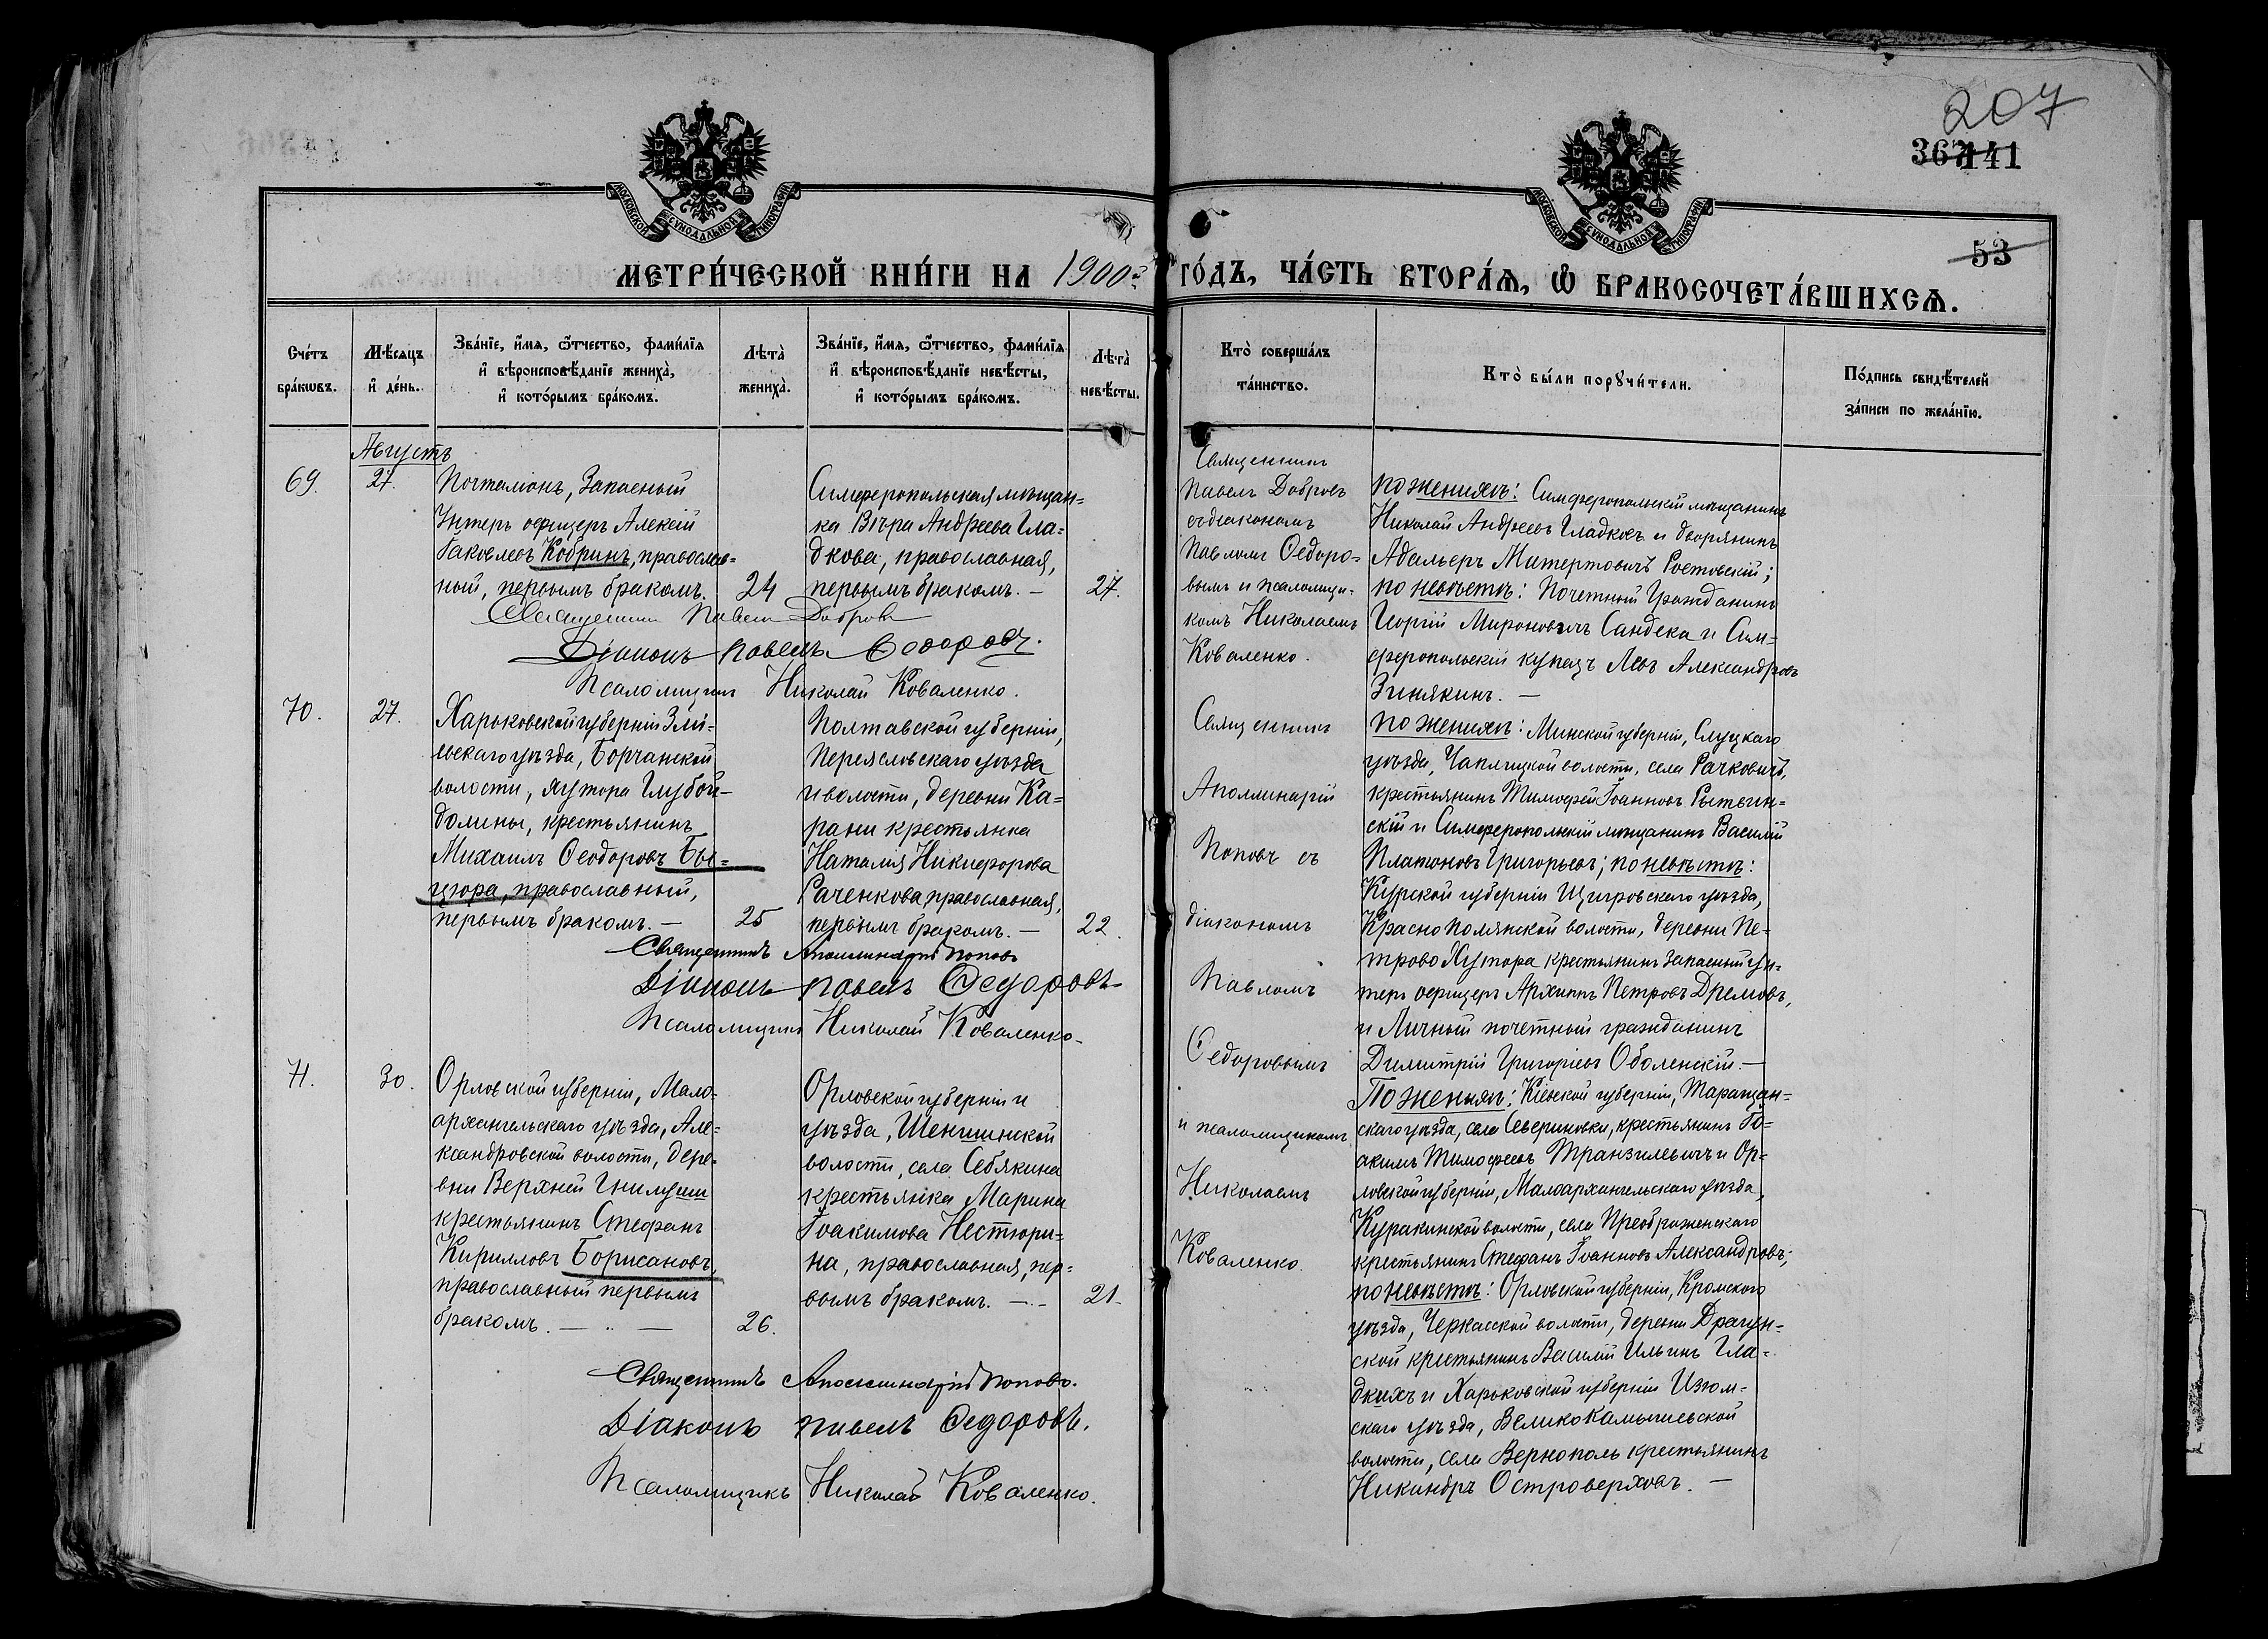 207
367 141
53
МОСКОВСКОЙ СУНОДАЛЬНОЙ ТИПОГРАФІИ
МОСКОВСКОЙ СУНОДАЛЬНОЙ ТИПОГРАФІИ
МЕТРИ́ЧЕСКОЙ КНИ́ГИ НА 1900й ГО́ДЪ, ЧА́СТЬ ВТОРА́Ѧ, Ѡ҆ БРАКОСОЧЕТА́ВШИХСѦ.
Сче́тъ
бра́кѡвъ.
Мѣ́сѧцъ
и҆ де́нь.
Зва́нїе, и҆́мѧ, ѻ҆́тчество, фами́лїѧ
и҆ вѣроисповѣ́данїе жениха̀,
и҆ кото́рымъ бра́комъ.
Лѣта̀
жениха̀.
Зва́нїе, и҆́мѧ, ѻ҆́тчество, фами́лїѧ
и҆ вѣроисповѣ́данїе невѣ́сты,
и҆ кото́рымъ бра́комъ.
Лѣта̀
невѣ́сты.
Кто̀ соверша́лъ
та́инство.
Кто̀ бы́ли порꙋчи́тели.
По́дпись свидѣ́телей
за́писи по жела́нїю.
Августъ
69.
27.
Почталіонъ, Запасный
Унтеръ офицеръ Алексій
Іаковлевъ Кобринъ, православ=
ный, первымъ бракомъ.
24
Симферопольская мѣщан=
ка Вѣра Андреева Гла=
дкова, православная,
первымъ бракомъ. —
27.
Священникъ
Павелъ Добровъ
съ діакономъ
Павломъ Ѳедоро=
вымъ и псаломщи-
комъ Николаемъ
Коваленко.
По женихѣ: Симферопольскій мѣщанинъ
Николай Андреевъ Гладковъ и дворянинъ
Адальеръ Митертовичъ Ростовскій;
по невѣстѣ: Почетный Гражданинъ
Георгій Мироновичъ Сандека и Сим=
феропольскій купецъ Левъ Александровъ
Зинякинъ. —
Священникъ Павелъ Добровъ
Діаконъ Павелъ Ѳедоровъ.
Псаломщикъ Николай Коваленко.
70.
27.
Харьковской губерніи Змі-
евскаго уѣзда, Борчанской
волости, хутора Глубой-
долины, крестьянинъ
Михаилъ Ѳеодоровъ Бы=
цюра, православный,
первымъ бракомъ. —
25
Полтавской губерніи,
Переясловскаго уѣзда
и волости, деревни Ка=
рани крестьянка
Наталія Никифорова
Раченкова, православная,
первымъ бракомъ. —
22.
Священникъ
Аполлинарій
Поповъ съ
діакономъ
Павломъ
Ѳедоровымъ
и псаломщикомъ
Николаемъ
Коваленко.
По женихѣ: Минской губерніи, Слуцкаго
уѣзда, Чаплицкой волости, села Рачковичъ,
крестьянинъ Тимофей Іоанновъ
скій и Симферопольскій мѣщанинъ Василій
Платоновъ Григорьевъ; по невѣстѣ:
Курской губерніи Щигровскаго уѣзда,
Краснополянской волости, деревни Пе-
трово Хутора крестьянинъ запасный ун-
теръ офицеръ Архиппъ Петровъ Дремовъ,
и Личный почетный гражданинъ
Димитрій Григоріевъ Оболенскій. —
Священникъ Аполлинарій Поповъ
Діаконъ Павелъ Ѳедоровъ
Псаломщикъ Николай Коваленко.
71.
30.
Орловской губерніи, Мало-
архангельскаго уѣзда, Але-
ксандровской волости, дере-
вни Верхней Гнилуши
крестьянинъ Стефанъ
Кирилловъ Борисановъ,
православный первымъ
бракомъ. —
26.
Орловской губерніи и
уѣзда, Шеншинской
волости, села Себякина
крестьянка Марина
Іоакимова Нестюри=
на, православная, пер=
вымъ бракомъ. —
21.
По женихѣ: Кіевской губерніи, Таращан=
скаго уѣзда, села Севериновки, крестьянинъ Іо=
акимъ Тимофеевъ Транзилевичъ и Ор=
ловской губерніи, Малоархангельскаго уѣзда,
Куракинской волости, села Преображенскаго
крестьянинъ Стефанъ Іоанновъ Александровъ;
по невѣстѣ: Орловской губерніи, Кромского
уѣзда, Черкасской волости, деревни Драгун=
ской крестьянинъ Василій Ильинъ Гла=
дкихъ и Харьковской губерніи Изюм-
скаго уѣзда, Великокамышевской
волости, села Вернополь крестьянинъ
Никандръ Островерховъ. —
Священникъ Аполлинарій Поповъ.
Діаконъ Павелъ Ѳедоровъ.
Псаломщикъ Николай Коваленко.